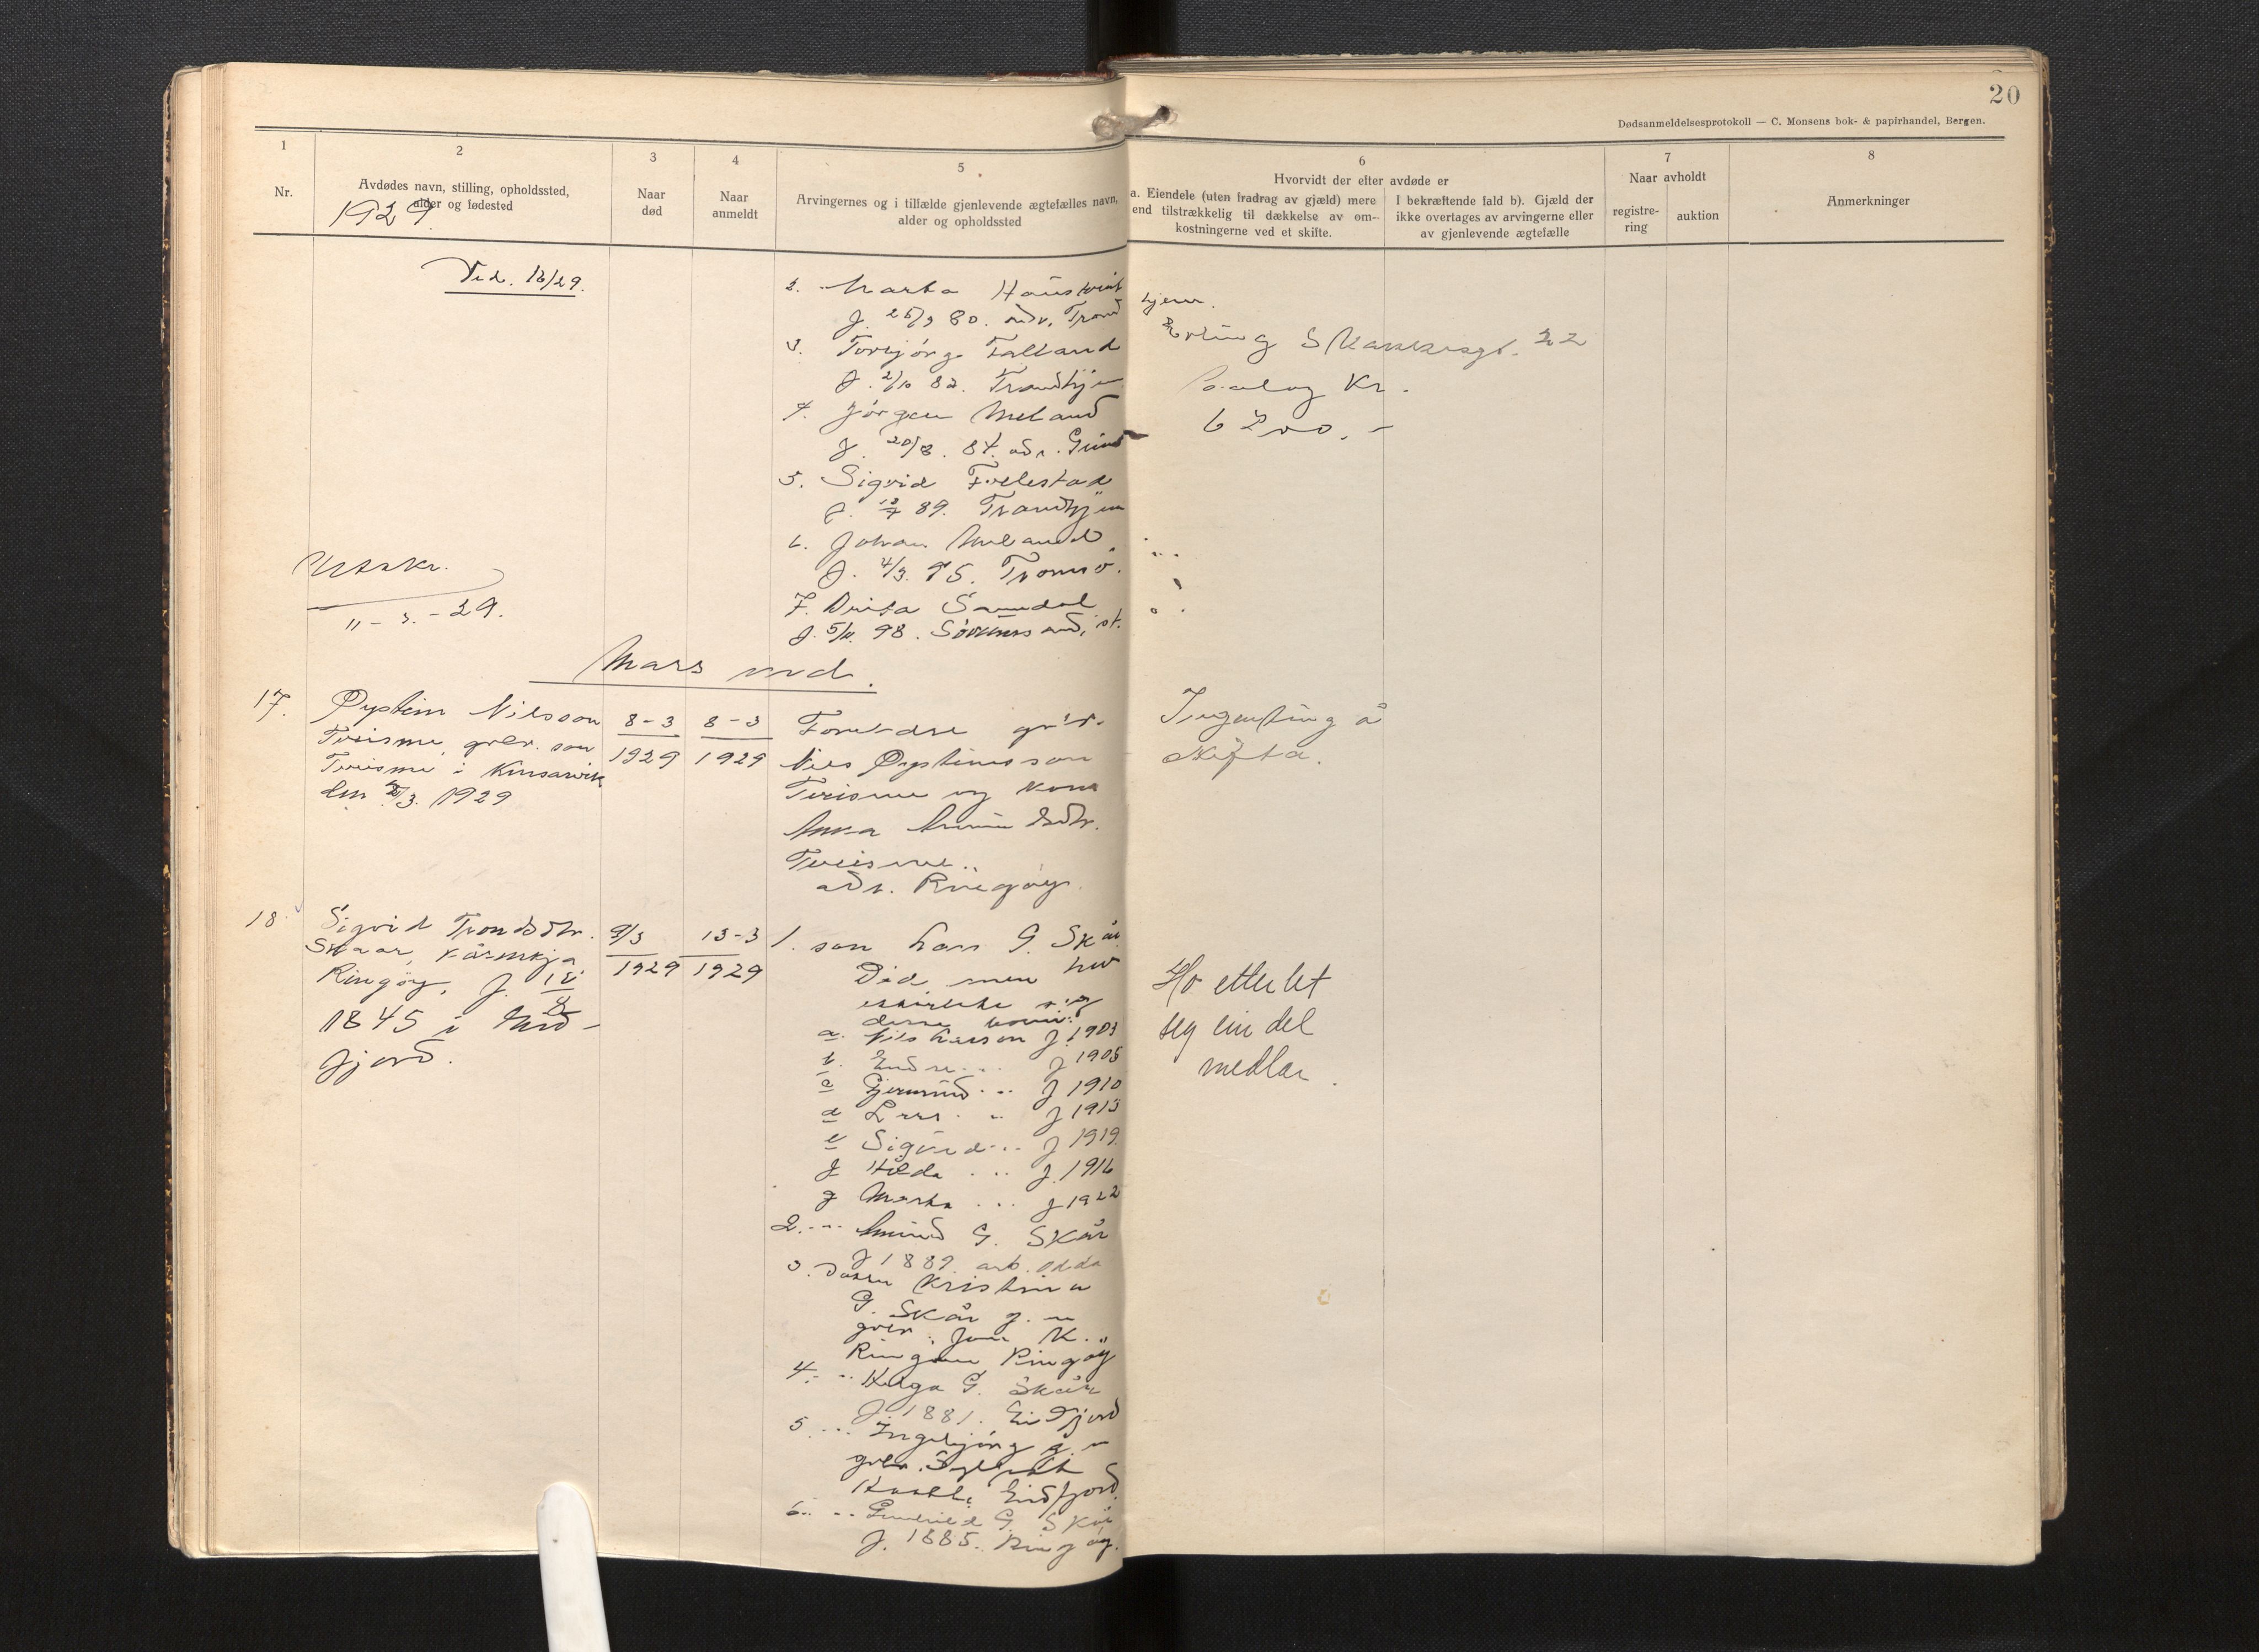 20
Dødsanmeldelsesprotokoll — C. Monsens bok- & papirhandel, Bergen.
1
2
3
4
5
6
7
8
Nr.
Avdødes navn, stilling, opholdssted,
alder og fødested
1929.
Naar
død
Naar
anmeldt
Arvingernes og i tilfælde gjenlevende ægtefælles navn,
alder og opholdssted
Hvorvidt der efter avdøde er
a. Eiendele (uten fradrag av gjæld) mere
end tilstrækkelig til dækkelse av om-
kostningerne ved et skifte.
I bekræftende fald b). Gjæld der
ikke overtages av arvingerne eller
av gjenlevende ægtefælle
Naar avholdt
registre-
ring
auktion
Anmerkninger
16/29.
2. Marta
f. 80. adr. Trond
hjem.
3. Torbjørg Falland
f. 2/10 82. Trondhjem
Erling Skakkesgt. 22
4. Jørgen Meland
f. 20/8. 84. adr.
Kr.
6200.-
5. Sigrid Follestad
f. 89. Trondhjem
6. Johan Meland
f. 4/3. 95. Tromsø.
7. Samdal
f. 98.
Utskr.
11-3.-29.
Mars md.
17.
Øystein Nilsson
Tveisme, grbr. son
Tveisme i Kinsarvik
den /3. 1929
8-3
1929
8-3
1929
Foreldre grbr.
Nils Øysteinsson
Tveisme og kona
Anna
Tveisme..
adr. Ringøy.
Ingenting å
skifta.
18
Sigrid Trondsdtr.
Skaar, kårenkja
Ringøy, f. 18/8
1845 i Eid-
fjord.
9/3
1929
13-3
1929
1. son Lars G. Skår
Död men hev
etterlete seg
desse
a. Nils Larsson f. 1903
b. Endre .. f 1905
c Gjermund .. f 1910
d Lars .. f 1913
e Sigurd .. f 1919.
f Hilda .. f. 1916
g Marta .. f 1922
Ho etterlet
seg ein del
medlar.
2. .. Amund G. Skår
f 1889. arb. Odda
3. Kristina
G. Skår g. m
grbr. Jon K.
Ringöy
4. .. Helga G. Skår
f 1881. Eidfjord
5 .. Ingebjörg g. m
grbr.
Eidfjord.
6. .. G. Skår
f. 1885. Ringøy.